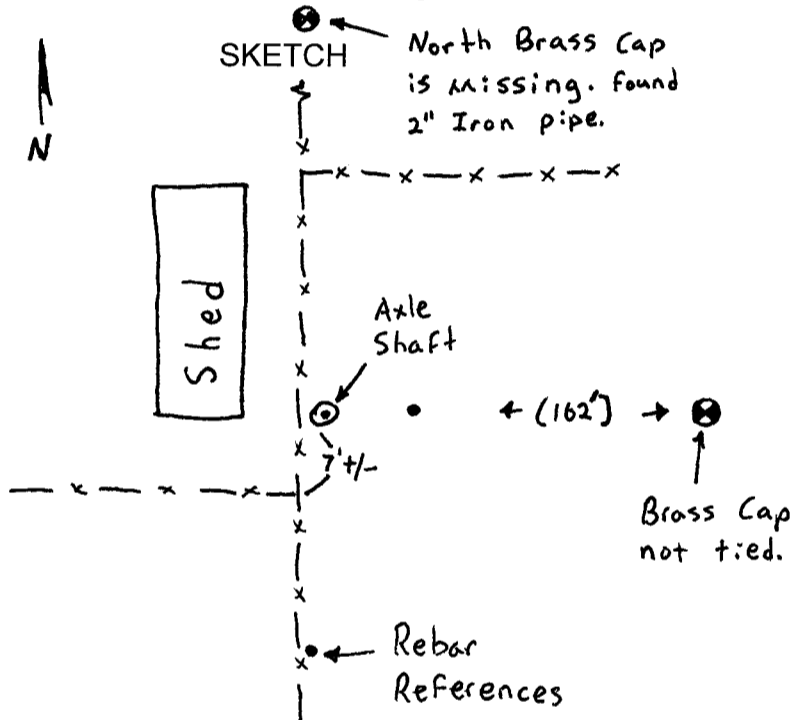 SKETCH
North Brass Cap
is missing. Found
2" Iron pipe.
N
Shed
Axle
Shaft
(162')
7'+/-
Brass Cap
not tied.
Rebar
References